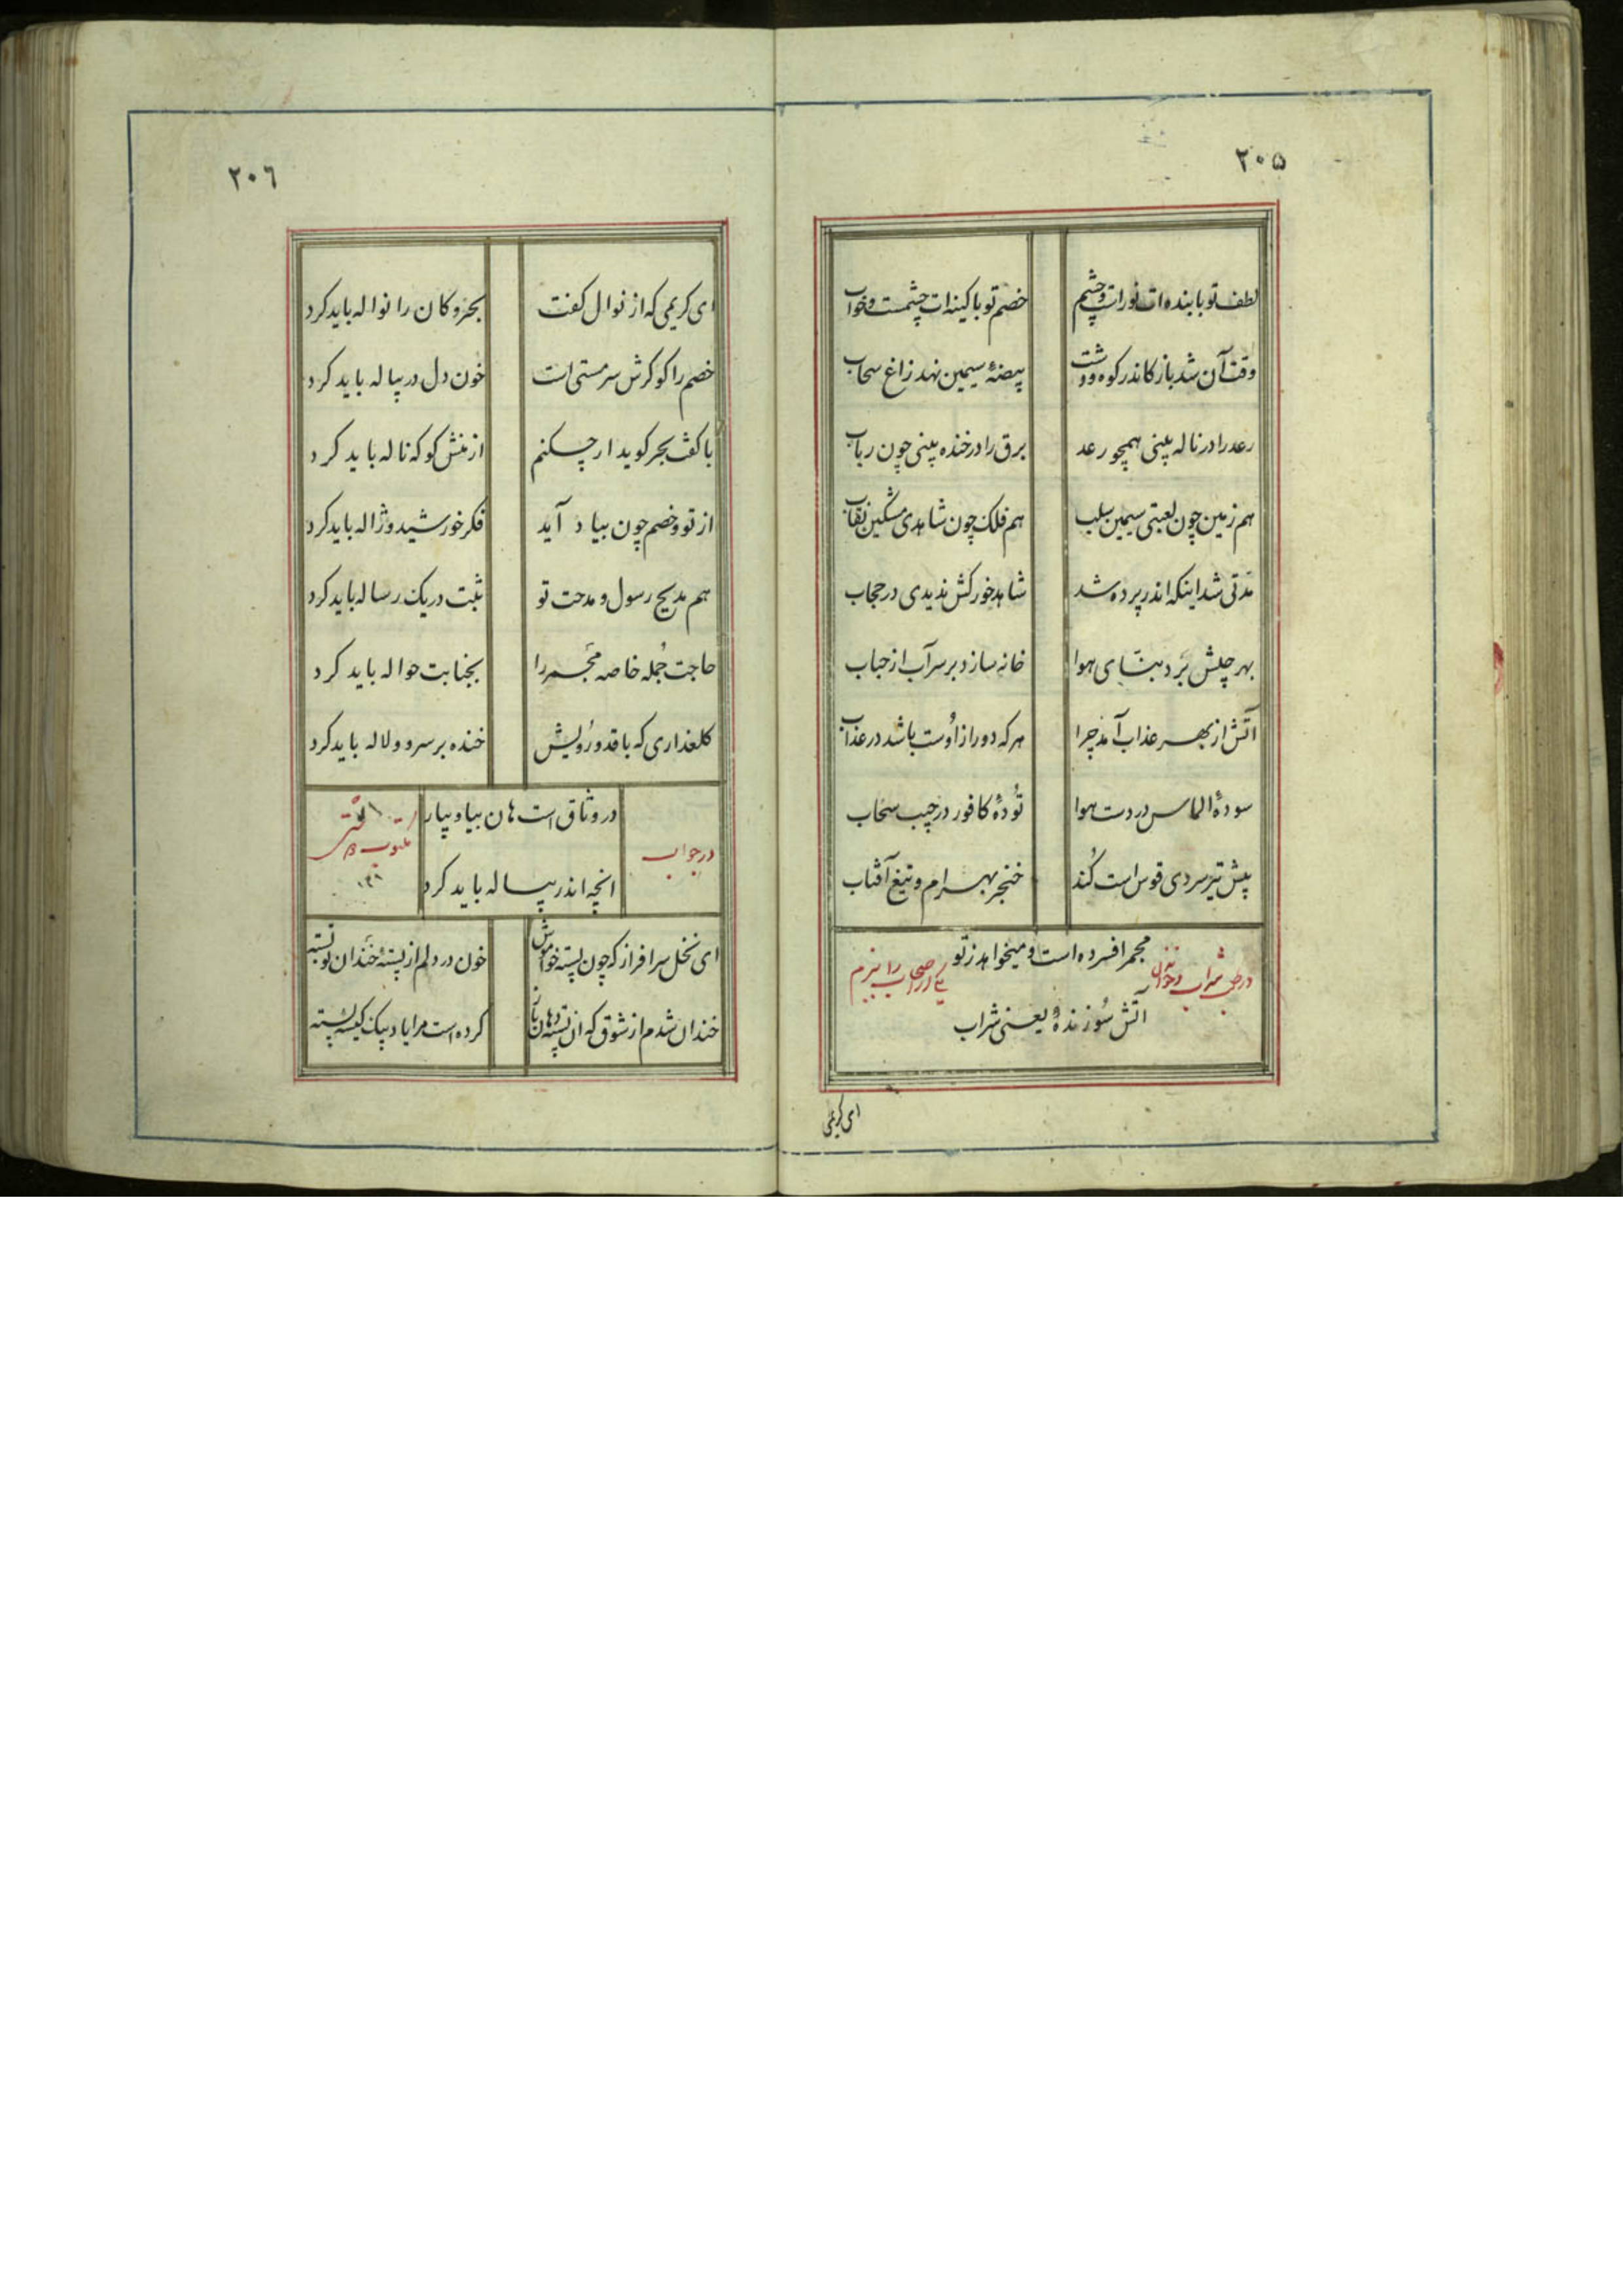 ۲۰۵
لطف تو با بنده ات نور است و چشم
خصم تو با کینه ات چشمست و خواب
وقت آن شد باز کاندر کوه و دشت
بیضهٔ سیمین نهد زاغ سحاب
رعد را در ناله بینی همچو رعد
برق را در خنده بینی چون رباب
هم زمین چون لعبتی سیمین سلب
هم فلک چون شاهدی مشکین نقاب
مدتی شد اینکه اندر پرده شد
شاهد خور کش ندیدی در حجاب
بهر چلش برد بنای هوا
خانه سازد بر سر آب از حباب
آتش از بهر عذاب آمد چرا
هر که دور از اوست باشد در عذاب
سودهٔ الماس در دست هوا
تودهٔ کافور در جیب سحاب
پیش تیر سردی قوس است کند
خنجر بهرام و تیغ آفتاب
مجمر افسرده است و میخواهد ز تو
آتش سوزندهٔ یعنی شراب
ای کریمی
۲۰۶
ای کریمی که از نوال کفت
بحر و کان را نواله باید کرد
خصم را کو کرش سر مستی است
خون دل در پیاله باید کرد
با کف بحر کوید ار چکنم
از منش کو که ناله باید کرد
از تو و خصم چون بیاد آید
فکر خورشید و ژاله باید کرد
هم مدیح رسول و مدحت تو
ثبت در یک رساله باید کرد
حاجت جمله خاصه مجمر را
بجنابت حواله باید کرد
کلعذاری که با قد و رویش
خنده بر سرو و لاله باید کرد
در جواب
در وثاق است هان بیا و بیار
انچه اندر پیاله باید کرد
ای نخل سرافراز که چون پسته خواموش
خون در دلم از پستهٔ خندان تو بسته
خندان شدم از شوق که آن پسته دهان باز
کرده است مرا یاد بیک کیسه پسته